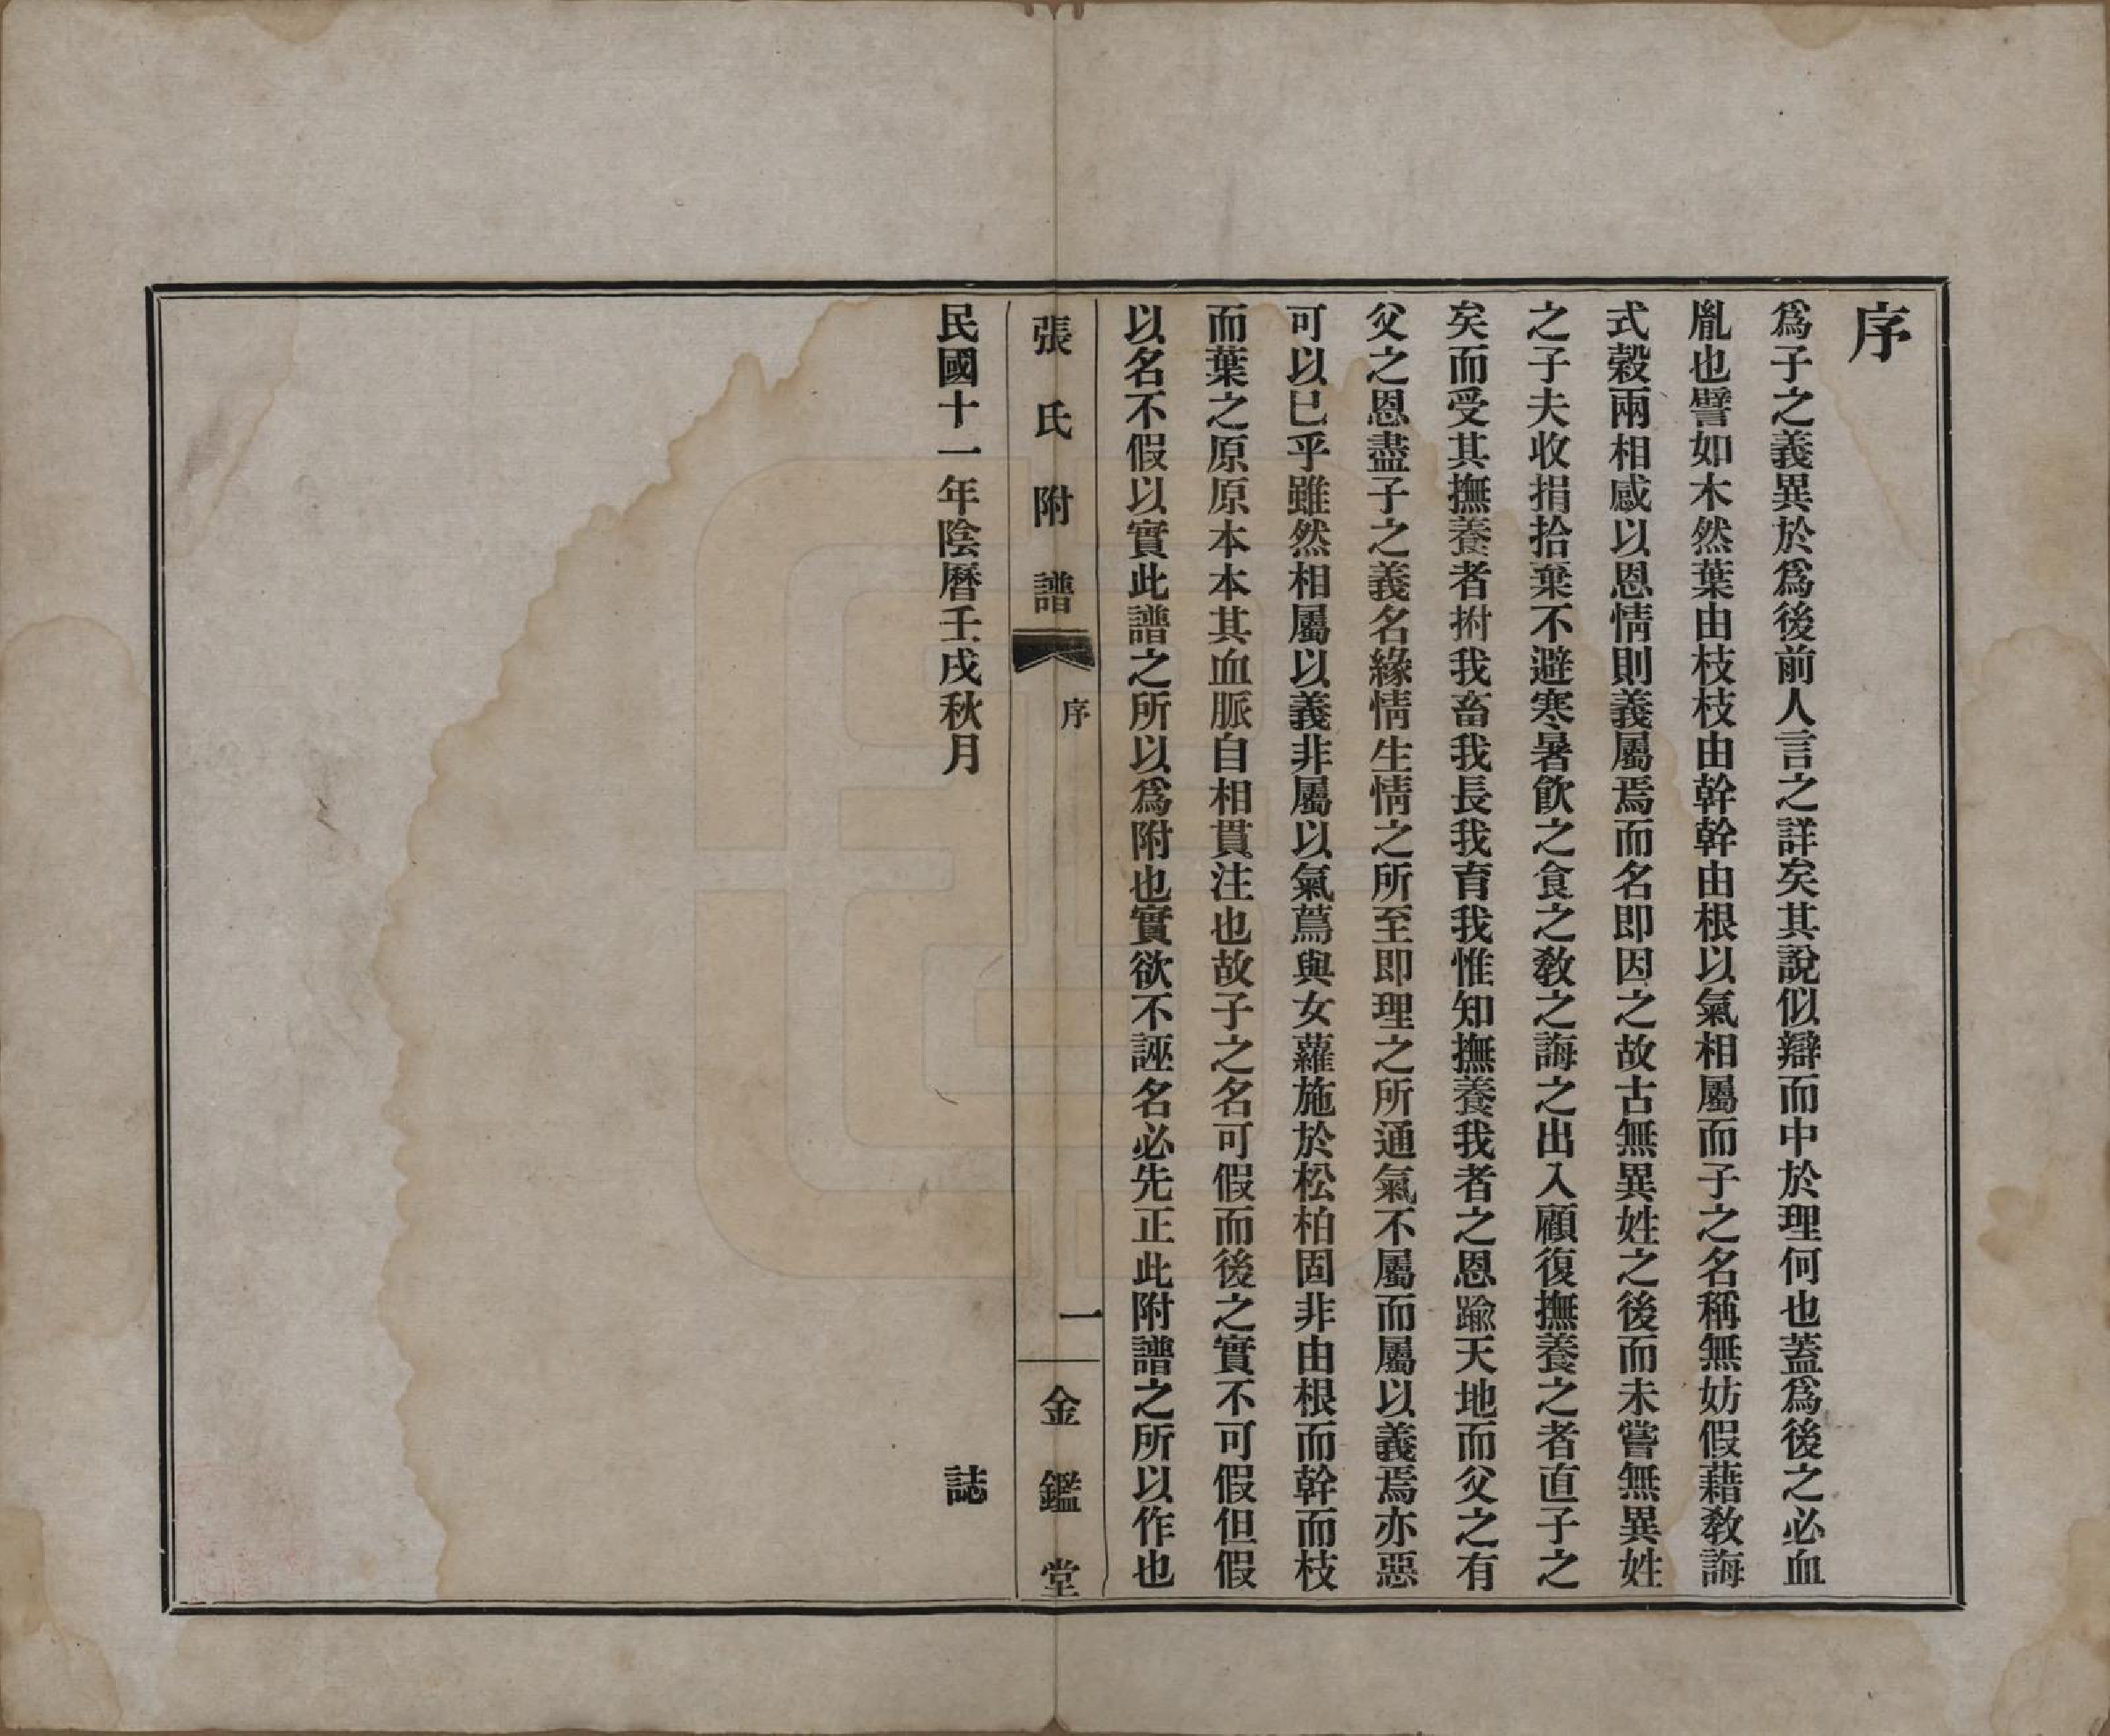 序
爲子之義異於爲後前人言之詳矣其說似辯而中於理何也蓋爲後之必血
胤也譬如木然葉由枝枝由幹幹由根以氣相屬而子之名稱無妨假藉敎誨
式穀兩相感以恩情則義屬焉而名即因之故古無異姓之後而未嘗無異姓
之子夫收捐拾棄不避寒暑飮之食之敎之誨之出入顧復撫養之者直子之
矣而受其撫養者拊我畜我長我育我惟知撫養我者之恩踰天地而父之有
父之恩盡子之義名緣情生情之所至即理之所通氣不屬而屬以義焉亦惡
可以已乎雖然相屬以義非屬以氣蔦與女蘿施於松柏固非由根而幹而枝
而葉之原原本本其血脈自相貫注也故子之名可假而後之實不可假但假
以名不假以實此譜之所以爲附也實欲不誣名必先正此附譜之所以作也
張氏附譜
序
一
金鑑堂
民國十一年陰曆壬戌秋月
誌